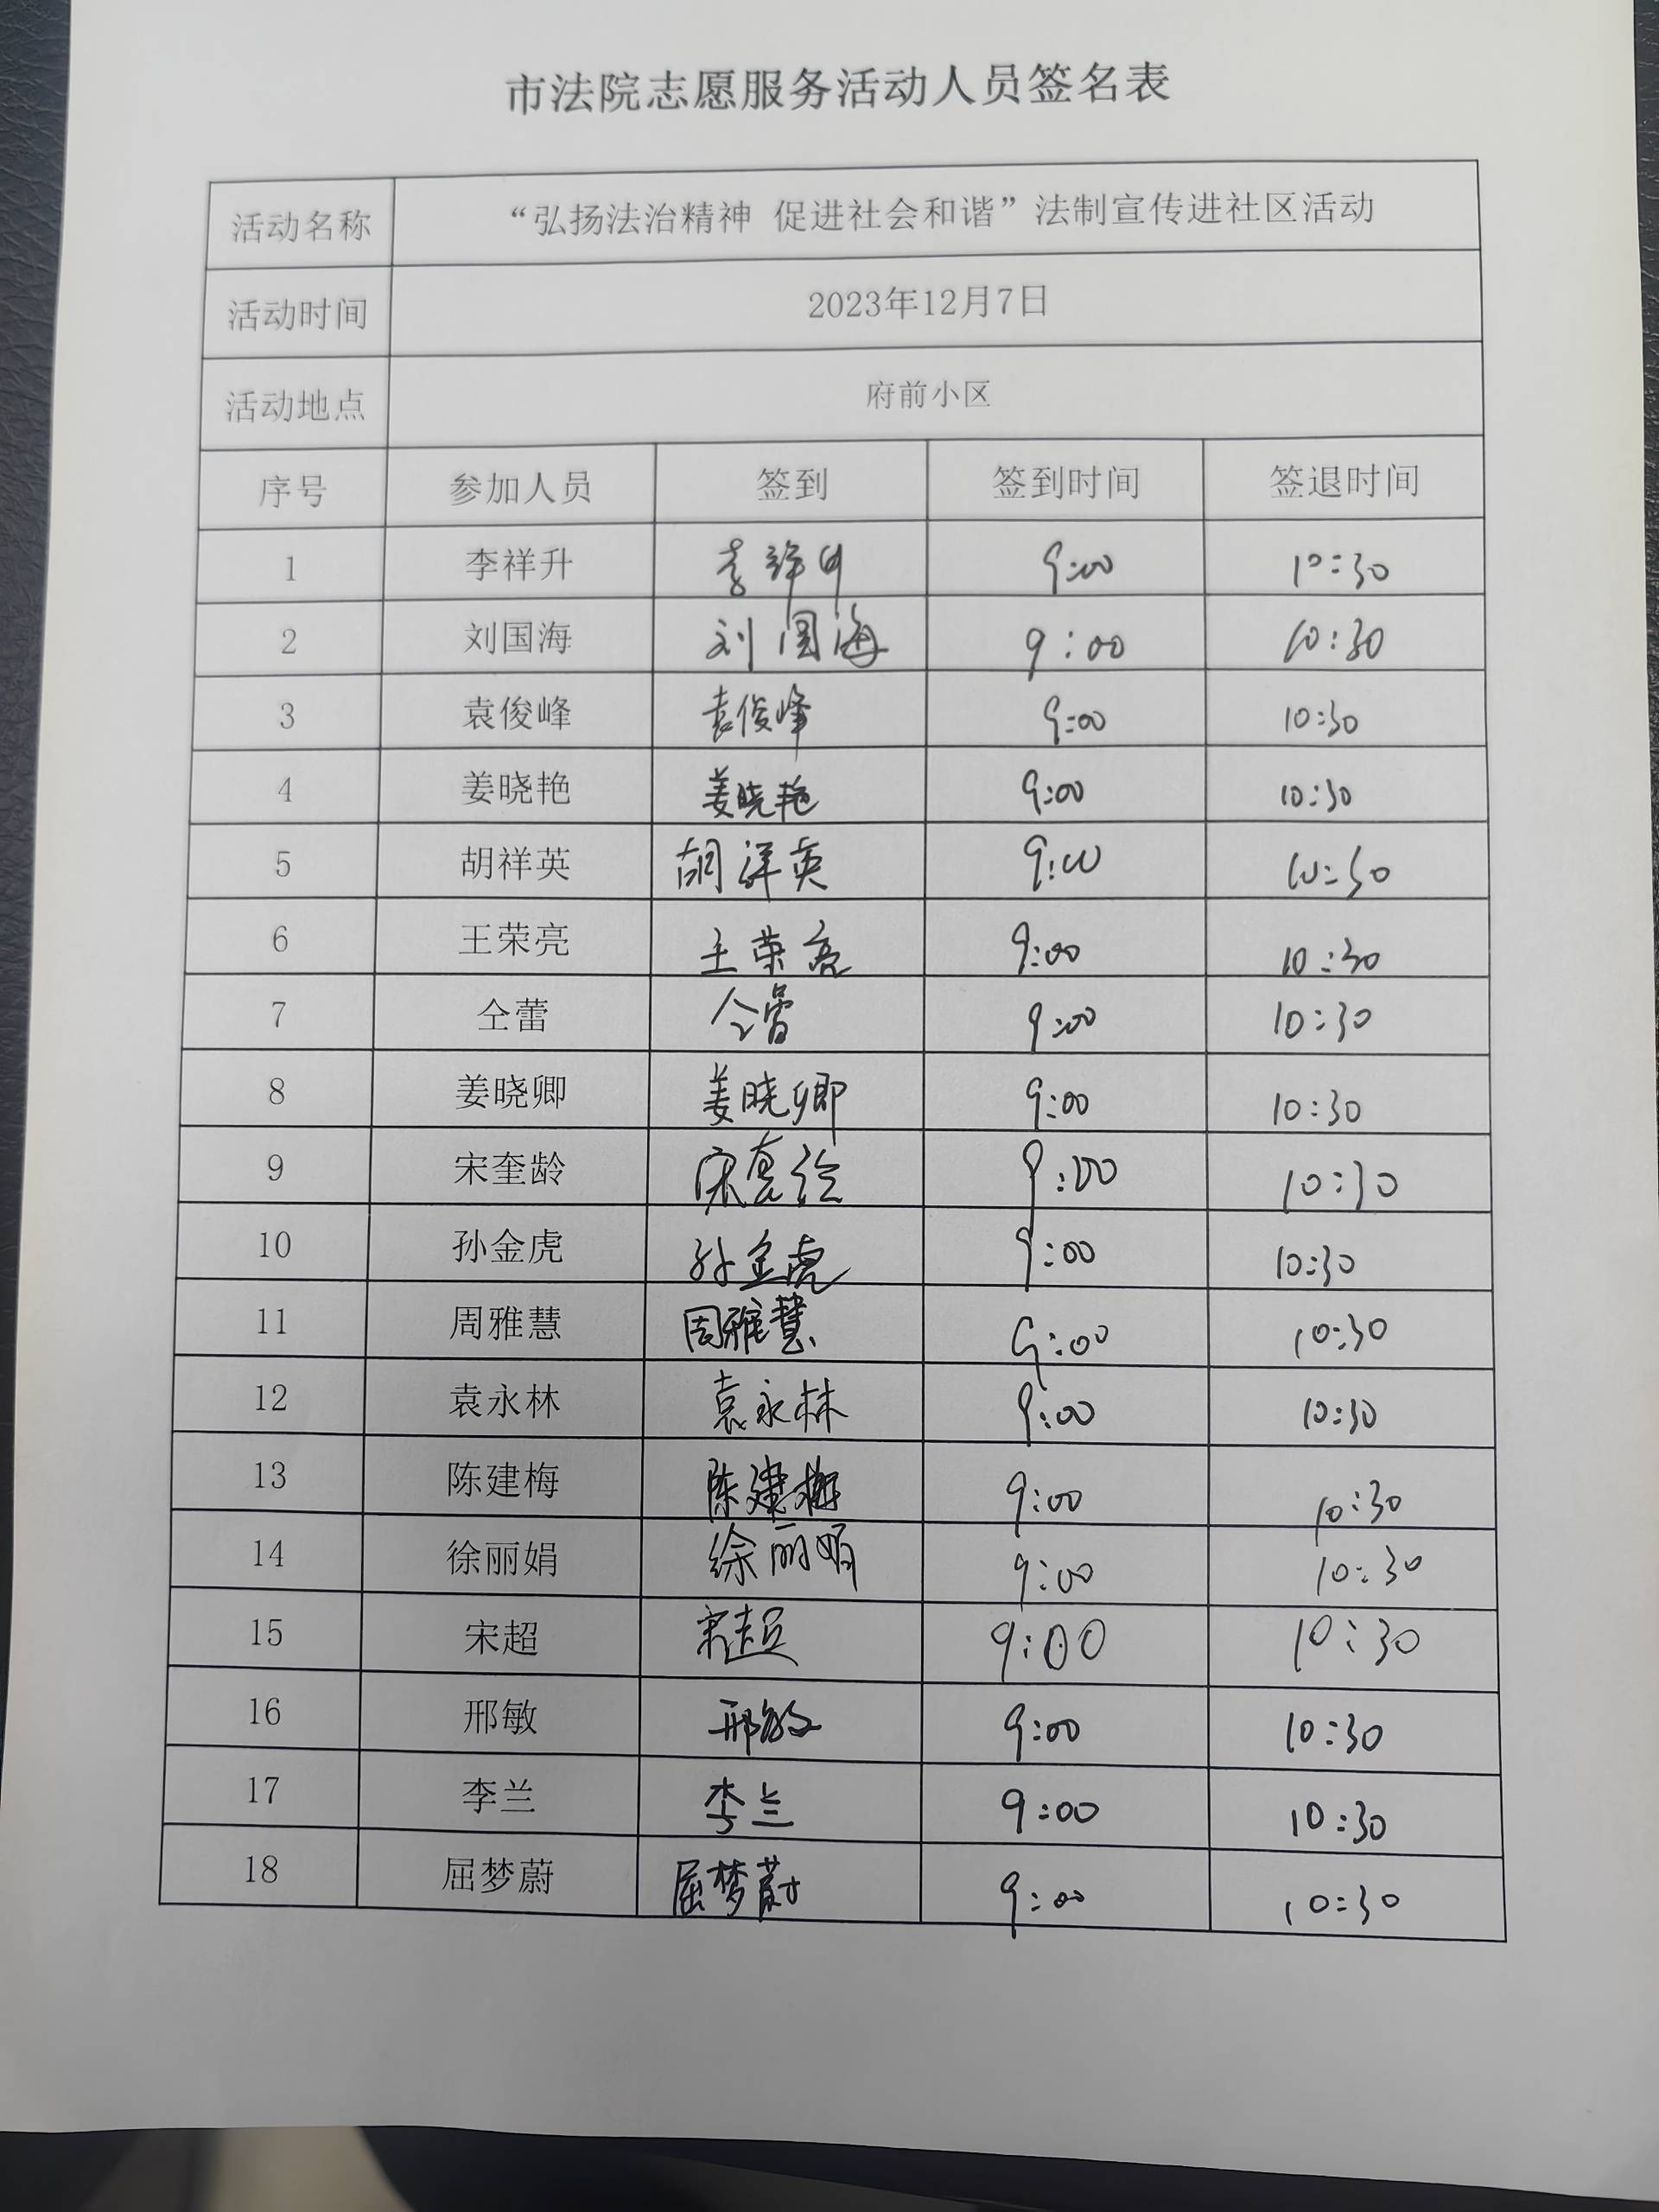 市法院志愿服务活动人员签名表
活动名称 “弘扬法治精神 促进社会和谐”法制宣传进社区活动
活动时间 2023年12月7日
活动地点 府前小区
序号 参加人员 签到 签到时间 签退时间
1 李祥升 李祥升 9:00 10:30
2 刘国海 刘国海 9:00 10:30
3 袁俊峰 袁俊峰 9:00 10:30
4 姜晓艳 姜晓艳 9:00 10:30
5 胡祥英 胡祥英 9:00 10:30
6 王荣亮 王荣亮 9:00 10:30
7 仝蕾 仝蕾 9:00 10:30
8 姜晓卿 姜晓卿 9:00 10:30
9 宋奎龄 宋奎龄 9:00 10:30
10 孙金虎 孙金虎 9:00 10:30
11 周雅慧 周雅慧 9:00 10:30
12 袁永林 袁永林 9:00 10:30
13 陈建梅 陈建梅 9:00 10:30
14 徐丽娟 徐丽娟 9:00 10:30
15 宋超 宋超 9:00 10:30
16 邢敏 邢敏 9:00 10:30
17 李兰 李兰 9:00 10:30
18 屈梦蔚 屈梦蔚 9:00 10:30